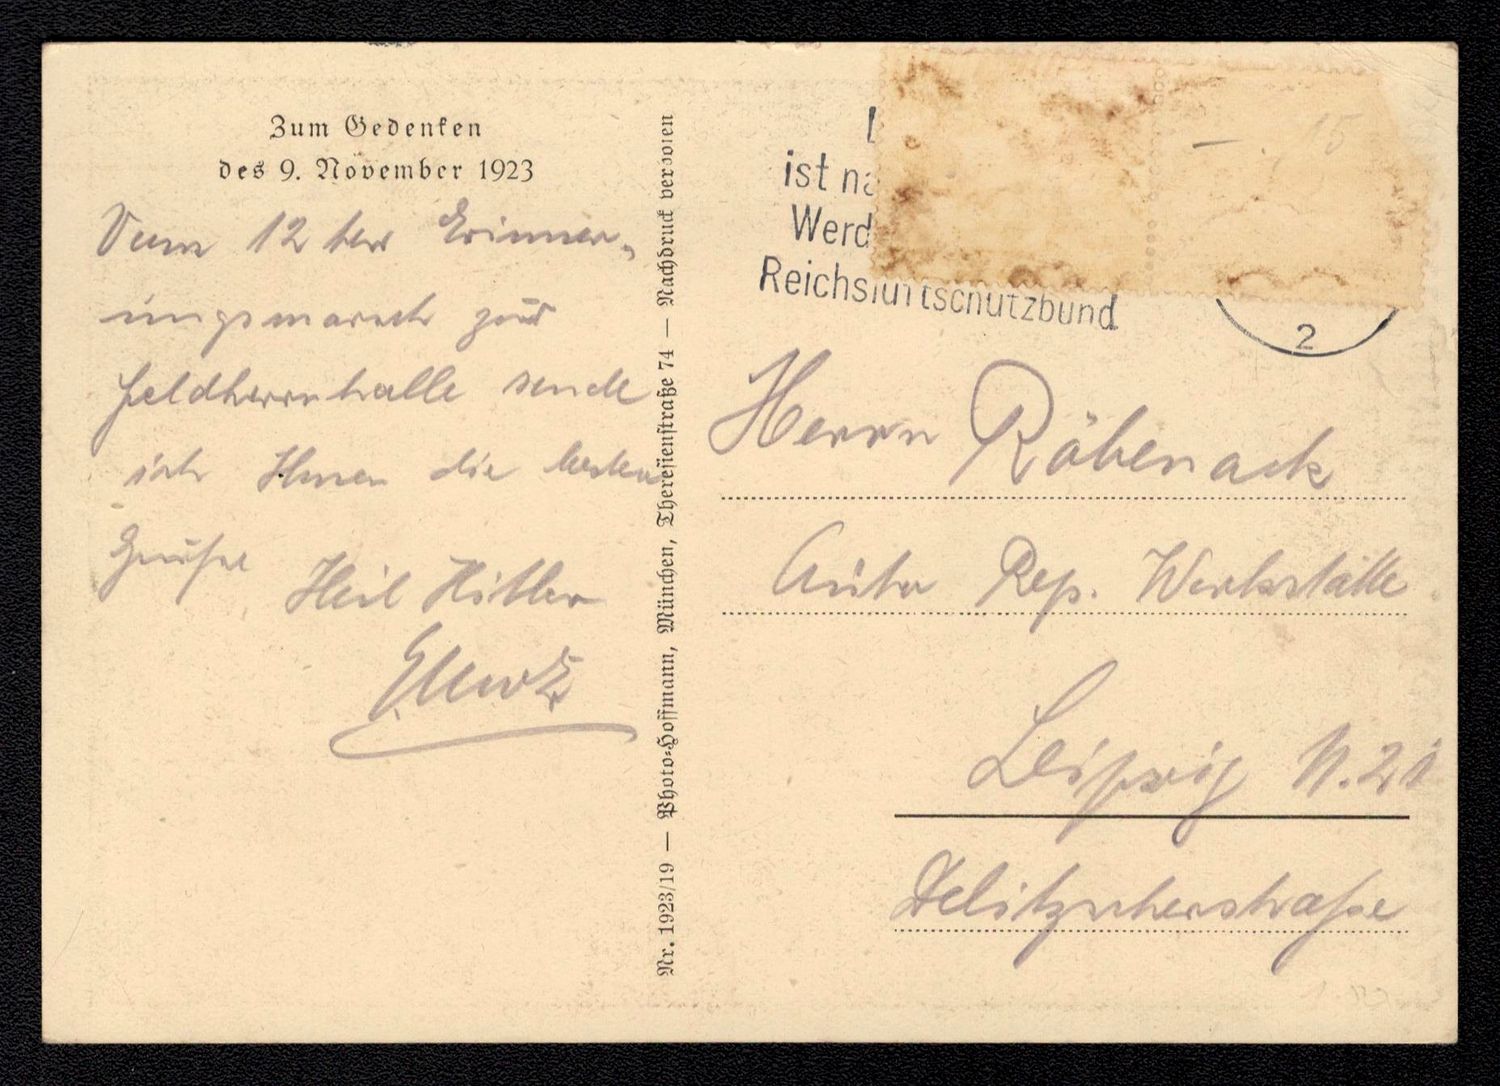 Zum Gedenken
des 9. November 1923
Vom 12 ten Erinner-
ungsmarsch zur
Feldherrnhalle sende
ich Ihnen die besten
Grüße
Heil Hitler
Nr. 1923/19 — Photo-Hoffmann, München, Theresienstraße 74 — Nachdruck verboten
ist
Werd
Reichsluftschutzbund
2
15
Herrn Räbenack
Auto Rep. Werkstätte
Leipzig N. 21
Delitzscherstraße